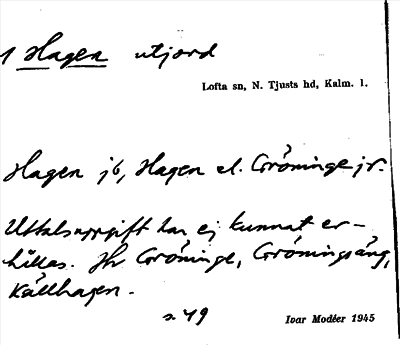 1 Hagen utjord
Lofta sn, N. Tjusts hd, Kalm. l.
Hagen jb, Hagen el. Gröninge jr.
Uttalsuppgift har ej kunnat er-
hållas. Jfr Gröninge, Gröningsäng,
Källhagen.
s. 49
Ivar Modéer 1945